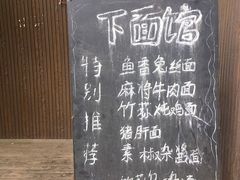 下面馆
特别推荐
鱼香兔丝面
麻将牛肉面
竹荪炖鸡面
猪肝面
素椒杂酱面